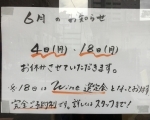 6月のお知らせ
4日(月)・18日(月)
お休みさせていただきます。
※18日は Wine 選定会となっております
完全ご予約制です。詳しくはスタッフまで!